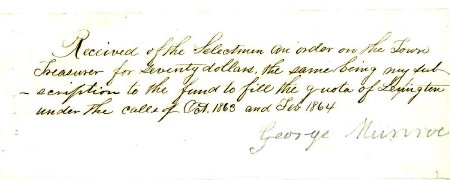 Received of the Selectmen an order on the Town
Treasurer for Seventy dollars, the same being my sub
-scription to the fund to fill the quota of Lexington
under the calls of Oct. 1863 and Feb 1864
George Munroe